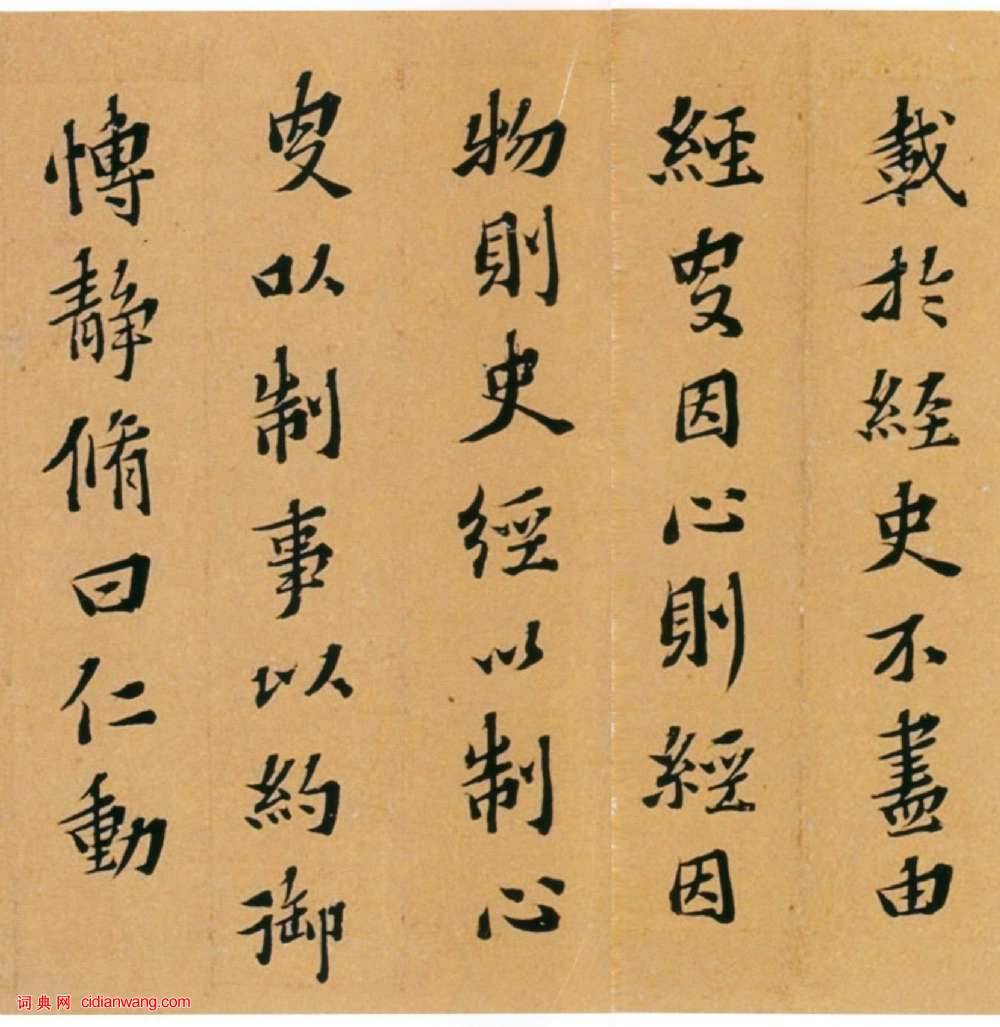 載於經史不盡由
經叓因心則經因
物則史經以制心
叓以制事以約御
愽静脩曰仁動
词典网 cidianwang.com